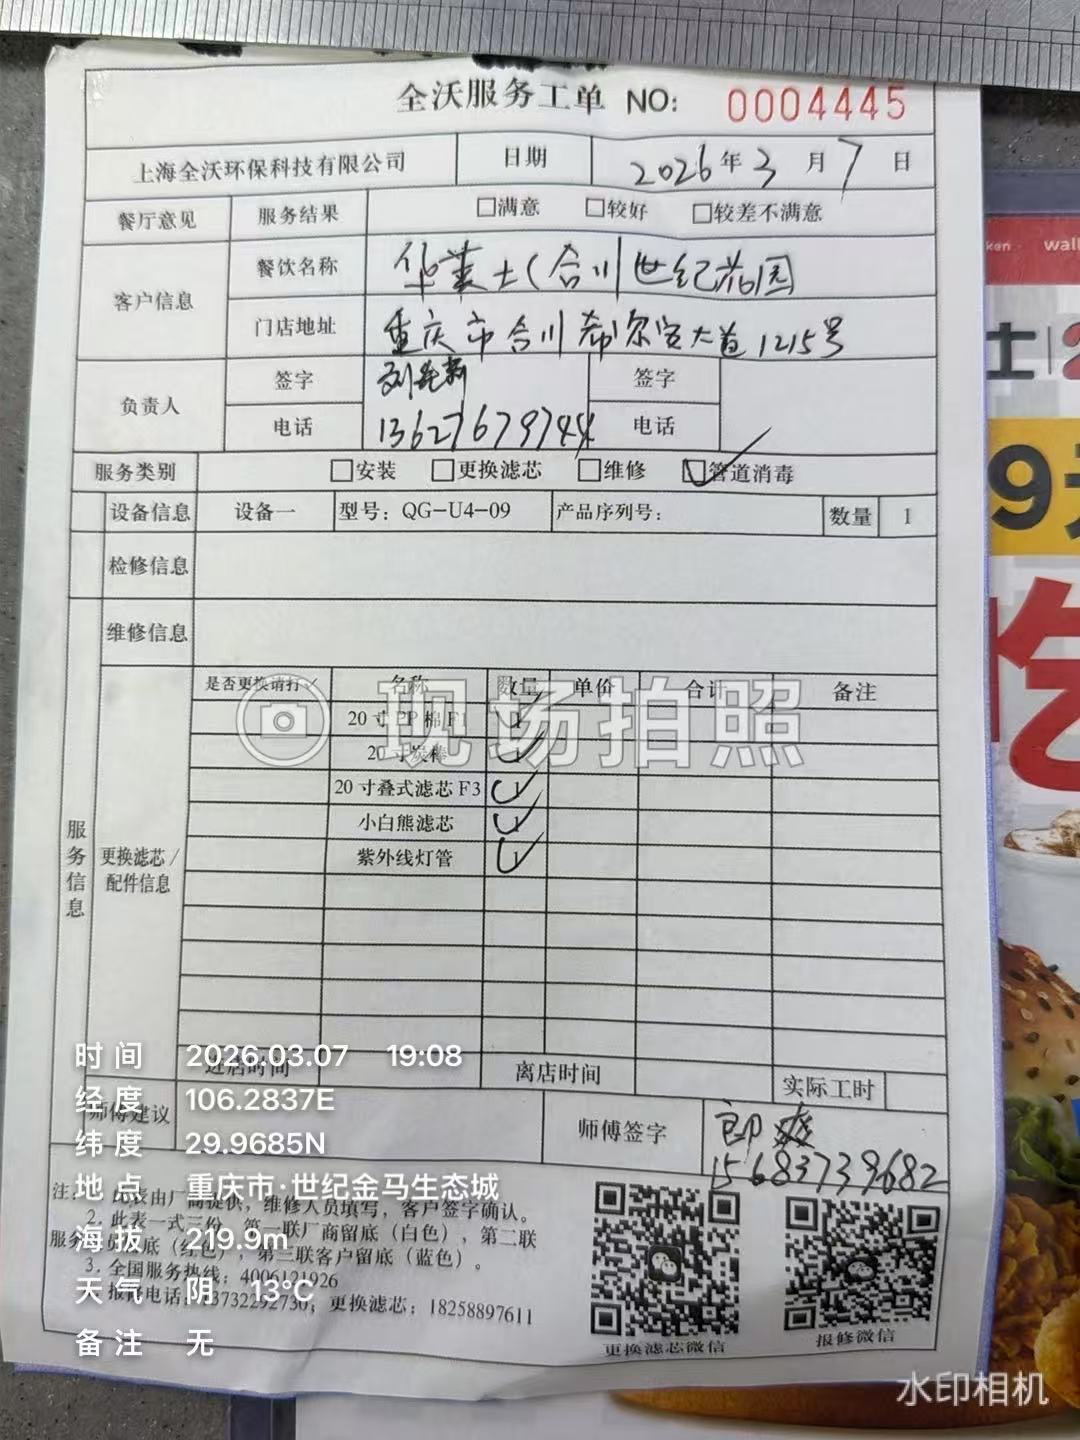 全沃服务工单 NO: 0004445
上海全沃环保科技有限公司 日期 2026年3月7日
餐厅意见 服务结果 □满意 □较好 □较差不满意
客户信息 餐饮名称 华莱士(合川世纪花园
门店地址 重庆市合川希尔安大道1215号
负责人 签字 签字
电话 13627679744 电话
服务类别 □安装 □更换滤芯 □维修 ☑管道消毒
设备信息 设备一 型号: QG-U4-09 产品序列号: 数量 1
检修信息
维修信息
服务信息
更换滤芯/配件信息
是否更换请打✓ 名称 数量 单价 合计 备注
20寸PP棉F1 1
20寸炭棒 1
20寸叠式滤芯F3 1
小白熊滤芯 1
紫外线灯管 1
现场拍照
进店时间 离店时间 实际工时
师傅建议 师傅签字 郎爽
15683739682
注: 1. 此表由厂商提供，维修人员填写，客户签字确认。
2. 此表一式三份，第一联厂商留底（白色），第二联
服务员留底（红色），第三联客户留底（蓝色）。
3. 全国服务热线: 4006121926
报修电话: 13732292730; 更换滤芯: 18258897611
更换滤芯微信
报修微信
时间 2026.03.07 19:08
经度 106.2837E
纬度 29.9685N
地点 重庆市·世纪金马生态城
海拔 219.9m
天气 阴 13℃
备注 无
水印相机
ken
wall
士
9元
吃